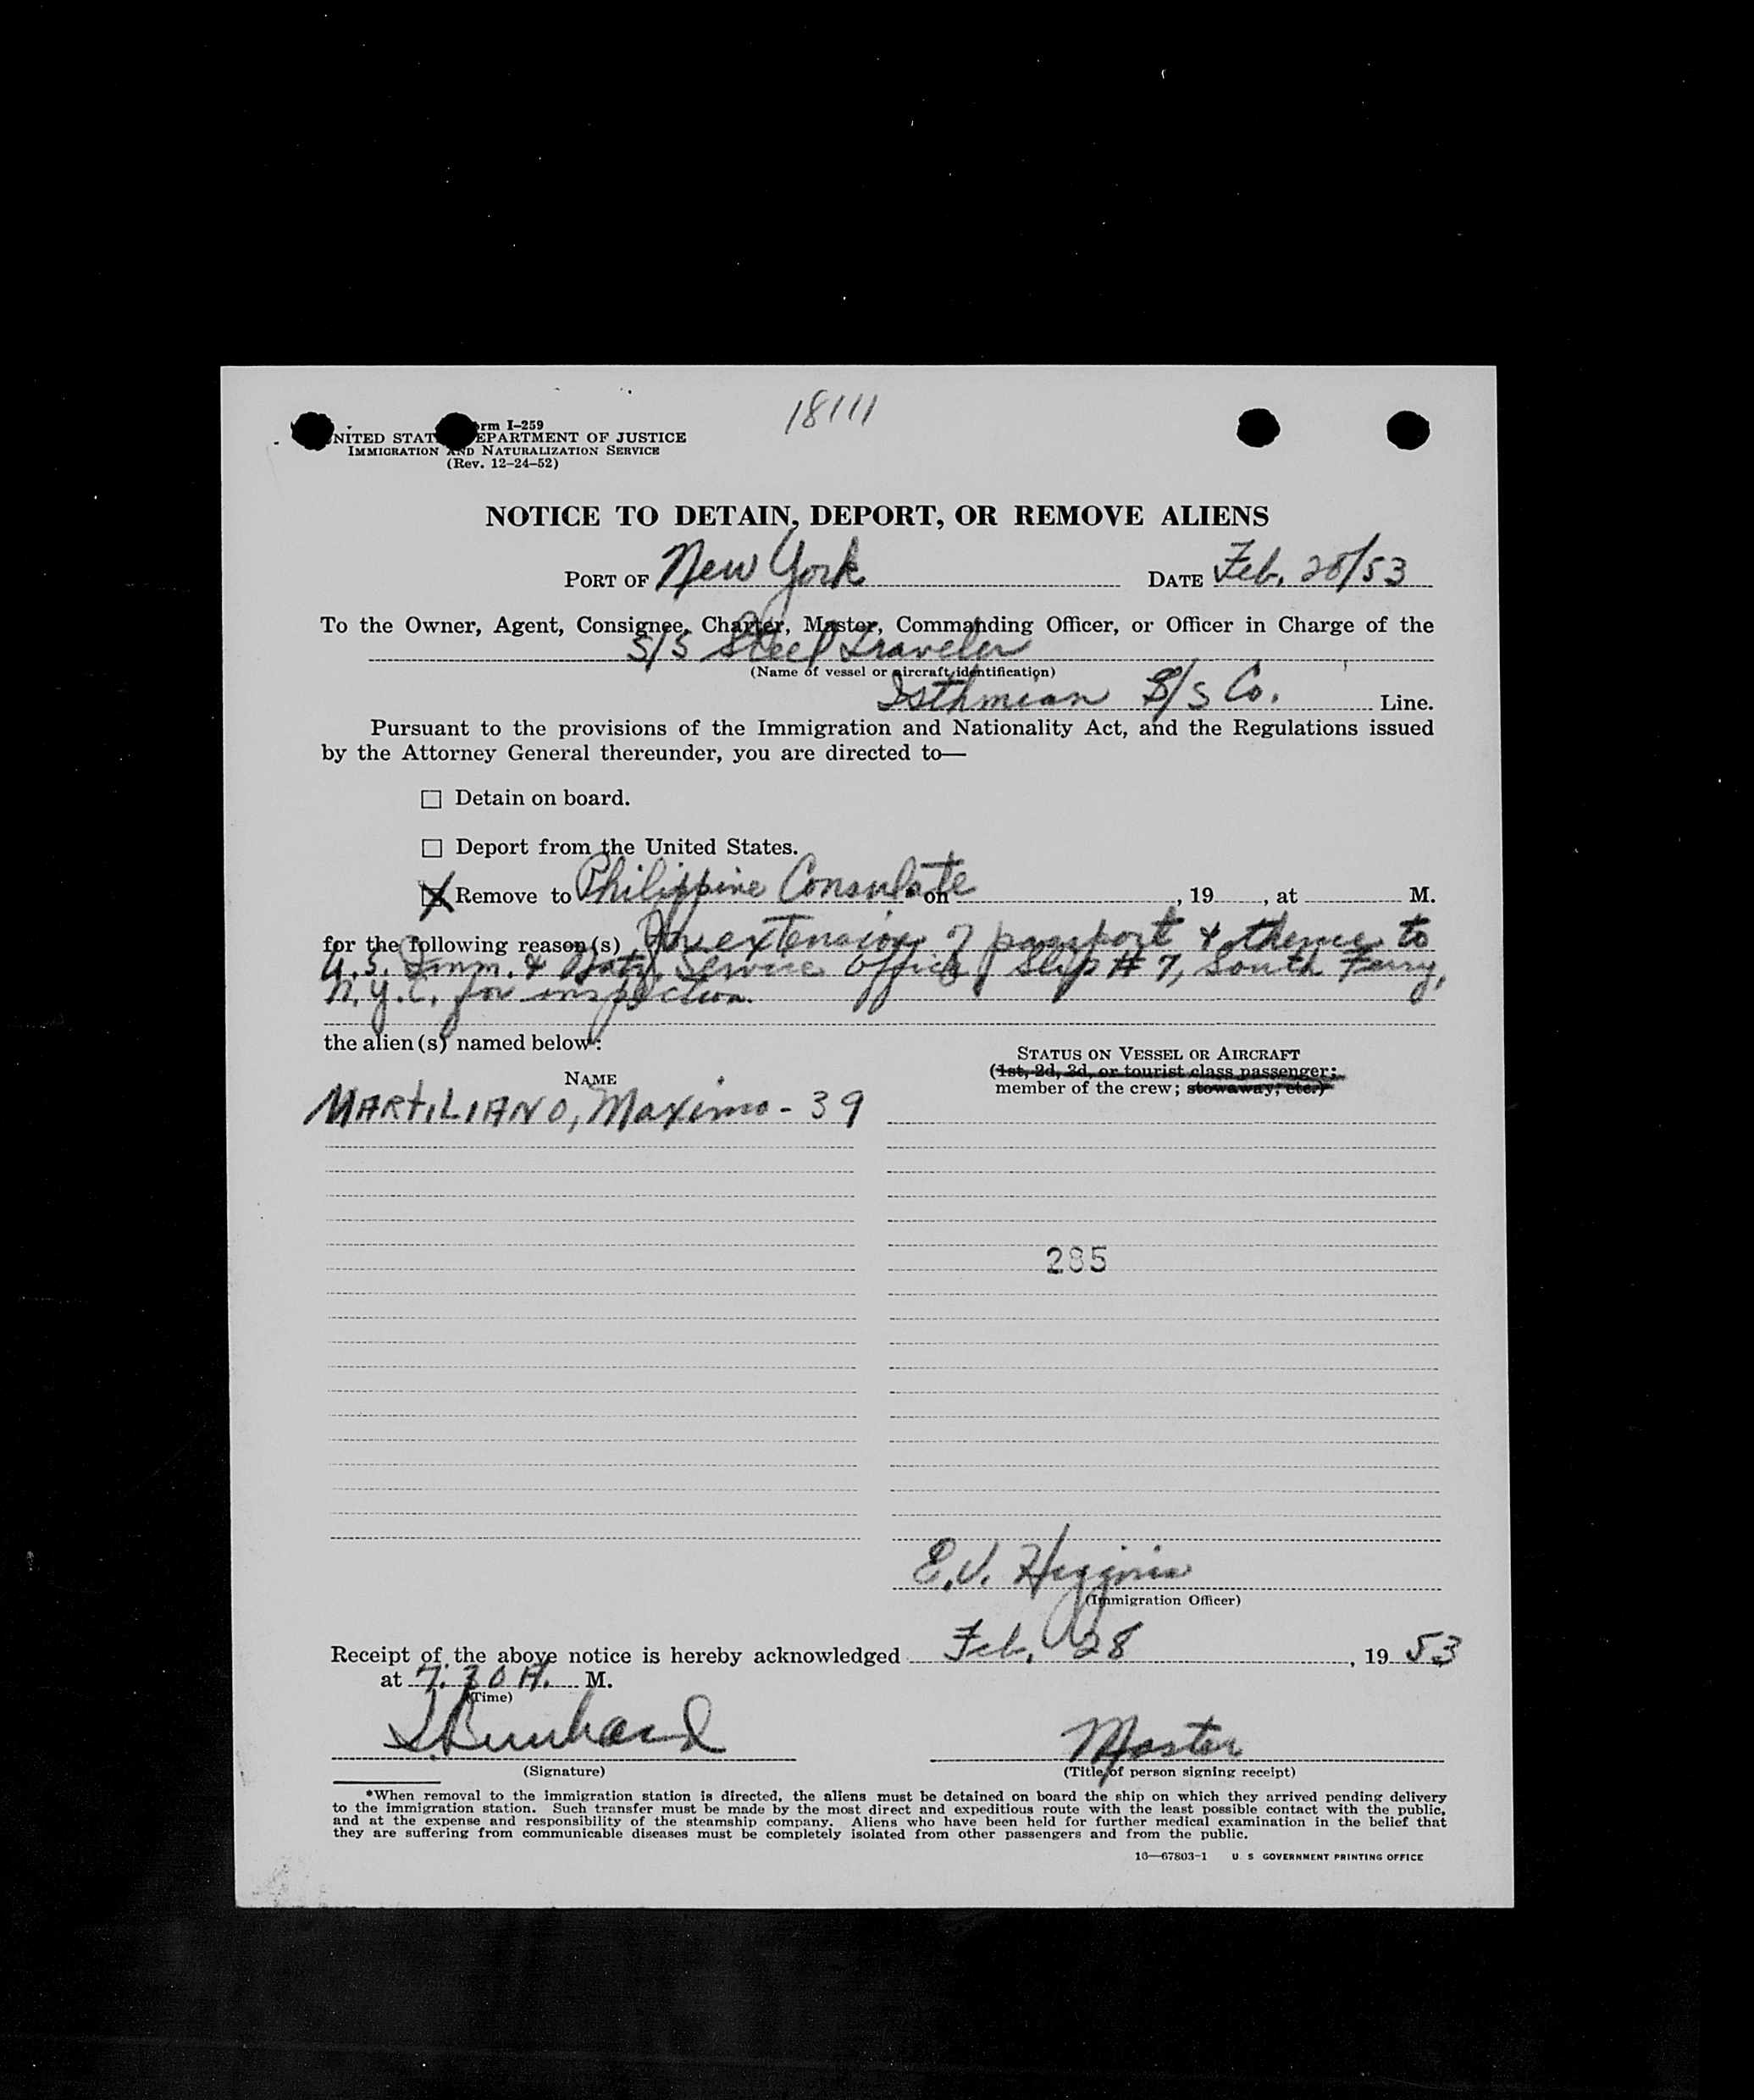 18111
rm I-259
NITED STAT EPARTMENT OF JUSTICE
IMMIGRATION AND NATURALIZATION SERVICE
(Rev. 12-24-52)
NOTICE TO DETAIN, DEPORT, OR REMOVE ALIENS
PORT OF New York DATE Feb. 28/53
To the Owner, Agent, Consignee, Charter, Master, Commanding Officer, or Officer in Charge of the
S/S Steel Traveler
(Name of vessel or aircraft identification)
Isthmian S/S Co. Line.
Pursuant to the provisions of the Immigration and Nationality Act, and the Regulations issued
by the Attorney General thereunder, you are directed to—
☐ Detain on board.
☐ Deport from the United States.
☒ Remove to Philippine Consulate on , 19 , at M.
for the following reason(s) for extension of passport & thence to
U.S. Imm. & Natz. Service Office, Slip # 7, South Ferry,
N.Y.C. for inspection.
the alien(s) named below:
NAME
STATUS ON VESSEL OR AIRCRAFT
(1st, 2d, 3d, or tourist class passenger;
member of the crew; stowaway; etc.)
MARTILIANO, Maximo - 39
285
E.V. Higgins
(Immigration Officer)
Receipt of the above notice is hereby acknowledged Feb. 28, 1953
at 7:30 A. M.
(Time)
Master
(Signature) (Title of person signing receipt)
*When removal to the immigration station is directed, the aliens must be detained on board the ship on which they arrived pending delivery
to the immigration station. Such transfer must be made by the most direct and expeditious route with the least possible contact with the public,
and at the expense and responsibility of the steamship company. Aliens who have been held for further medical examination in the belief that
they are suffering from communicable diseases must be completely isolated from other passengers and from the public.
16—67803-1 U S GOVERNMENT PRINTING OFFICE